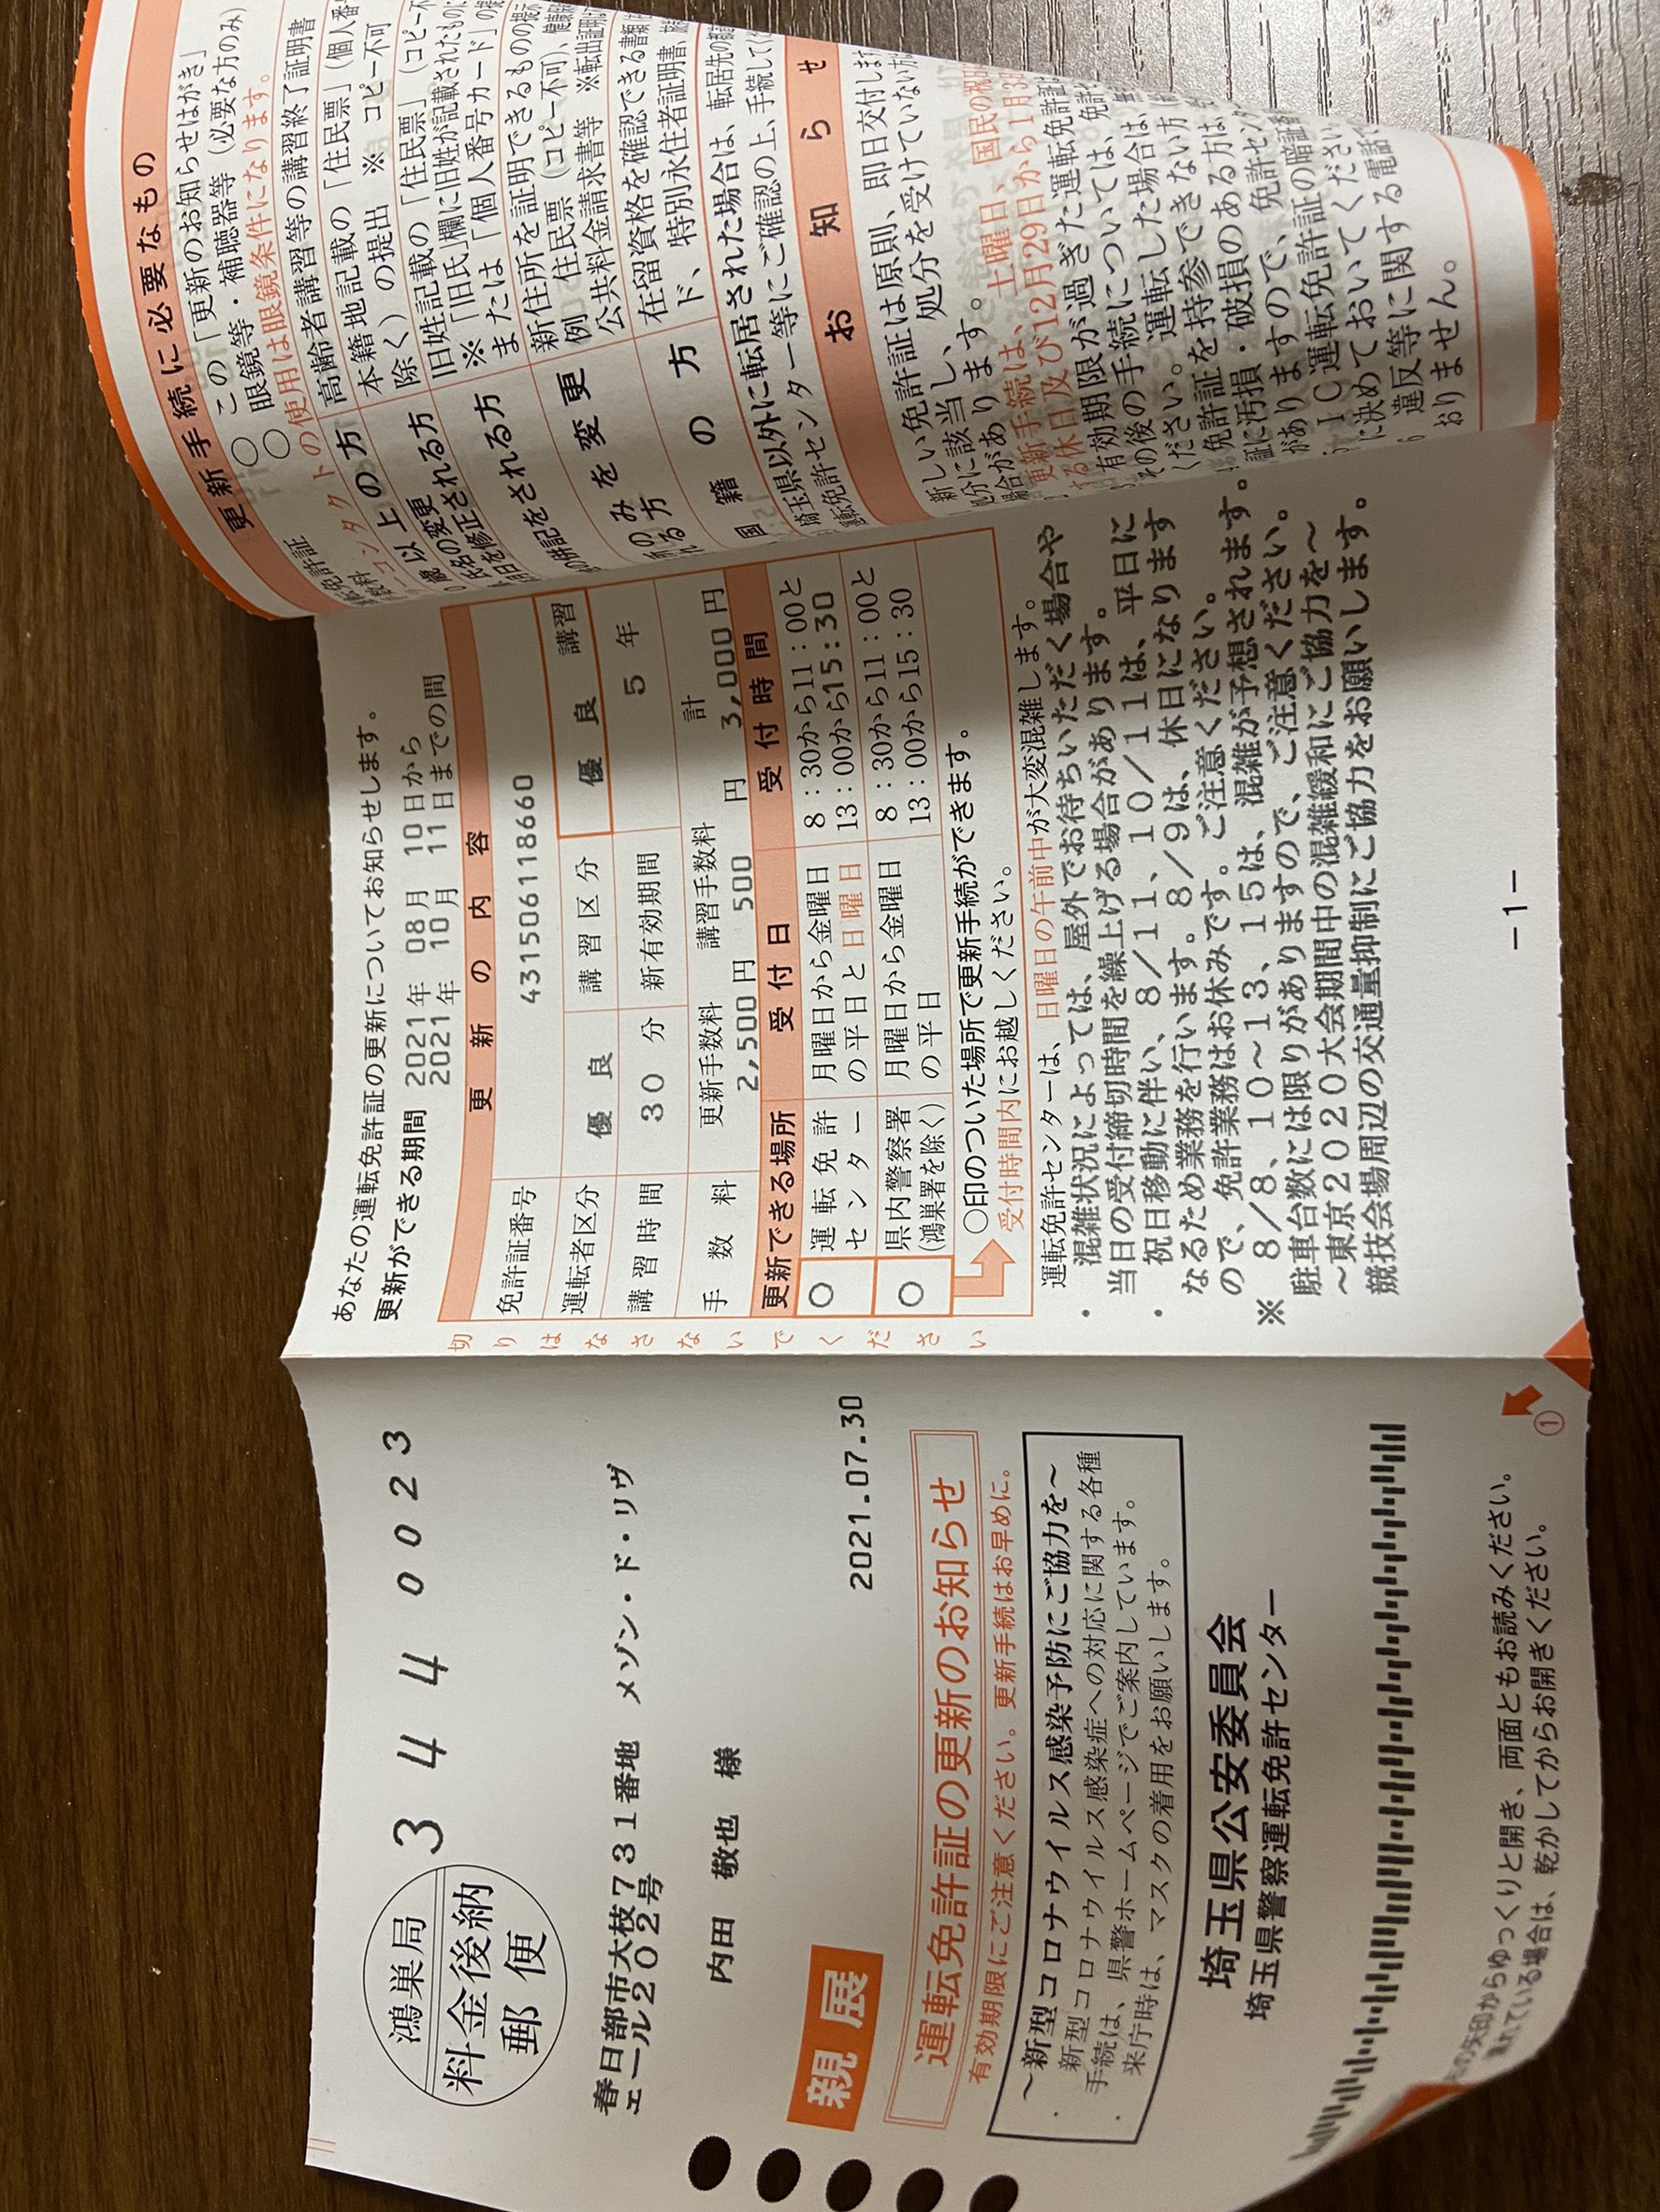 鴻巣局
料金後納
郵便
344 0023
春日部市大枝731番地 メゾン・ド・リヴ
エール202号
内田 敬也 様
2021.07.30
親展
運転免許証の更新のお知らせ
有効期限にご注意ください。更新手続はお早めに。
~新型コロナウイルス感染予防にご協力を~
・ 新型コロナウイルス感染症への対応に関する各種
手続は、県警ホームページでご案内しています。
・ 来庁時は、マスクの着用をお願いします。
埼玉県公安委員会
埼玉県警察運転免許センター
①
の矢印からゆっくりと開き、両面ともお読みください。
れている場合は、乾かしてからお開きください。
切りはなさないでください
あなたの運転免許証の更新についてお知らせします。
更新ができる期間 2021年 08月 10日から
2021年 10月 11日までの間
更新の内容
免許証番号 431506118660
運転者区分 優良 講習区分 優良 講習
講習時間 30分 新有効期間 5年
手数料 更新手数料 講習手数料 計
2,500円 500円 3,000円
更新できる場所 受付日 受付時間
○ 運転免許センター 月曜日から金曜日の平日と日曜日 8:30から11:00と
13:00から15:30
○ 県内警察署(鴻巣署を除く) 月曜日から金曜日の平日 8:30から11:00と
13:00から15:30
○印のついた場所で更新手続ができます。
受付時間内にお越しください。
運転免許センターは、日曜日の午前中が大変混雑します。
・ 混雑状況によっては、屋外でお待ちいただく場合や
当日の受付締切時間を繰上げる場合があります。
・ 祝日移動に伴い、8/11、10/11は、平日に
なるため業務を行います。8/9は、休日になります
ので、免許業務はお休みです。ご注意ください。
※ 8/8、10~13、15は、混雑が予想されます。
駐車台数には限りがありますので、ご注意ください。
~東京2020大会期間中の混雑緩和にご協力を~
競技会場周辺の交通量抑制にご協力をお願いします。
-1-
更新手続に必要なもの
免許証 ○ この「更新のお知らせはがき」
○ 眼鏡等・補聴器等(必要な方のみ)
コンタクトの使用は眼鏡条件になります。
以上の方 高齢者講習等の講習終了証明書
氏名の変更 本籍地記載の「住民票」(個人番
を修正される方 除く)の提出 ※ コピー不可
の併記をされる方 旧姓記載の「住民票」(コピー不
※「旧氏」欄に旧姓が記載されたもの
または「個人番号カード」の
のみを変更 新住所を証明できるものの
る方 例 住民票(コピー不可)、
公共料金請求書等 ※転出証明
国籍の方 在留資格を確認できる書
ド、特別永住者証明書、
埼玉県以外に転居された場合は、転居先の
運転免許センター等にご確認の上、手続して
お知らせ
新しい免許証は原則、即日交付しま
処分に該当し、処分を受けていない方
場合があります。
更新手続は、土曜日、国民の祝
する休日及び12月29日から1月3
有効期限が過ぎた運転免許証
その後の手続については、免許
ください。運転した場合は、
免許証を持参できない方
証に汚損・破損のある方は、
がありますので、免許セン
IC運転免許証の暗証番
に決めておいてください
違反等に関する電話
おりません。